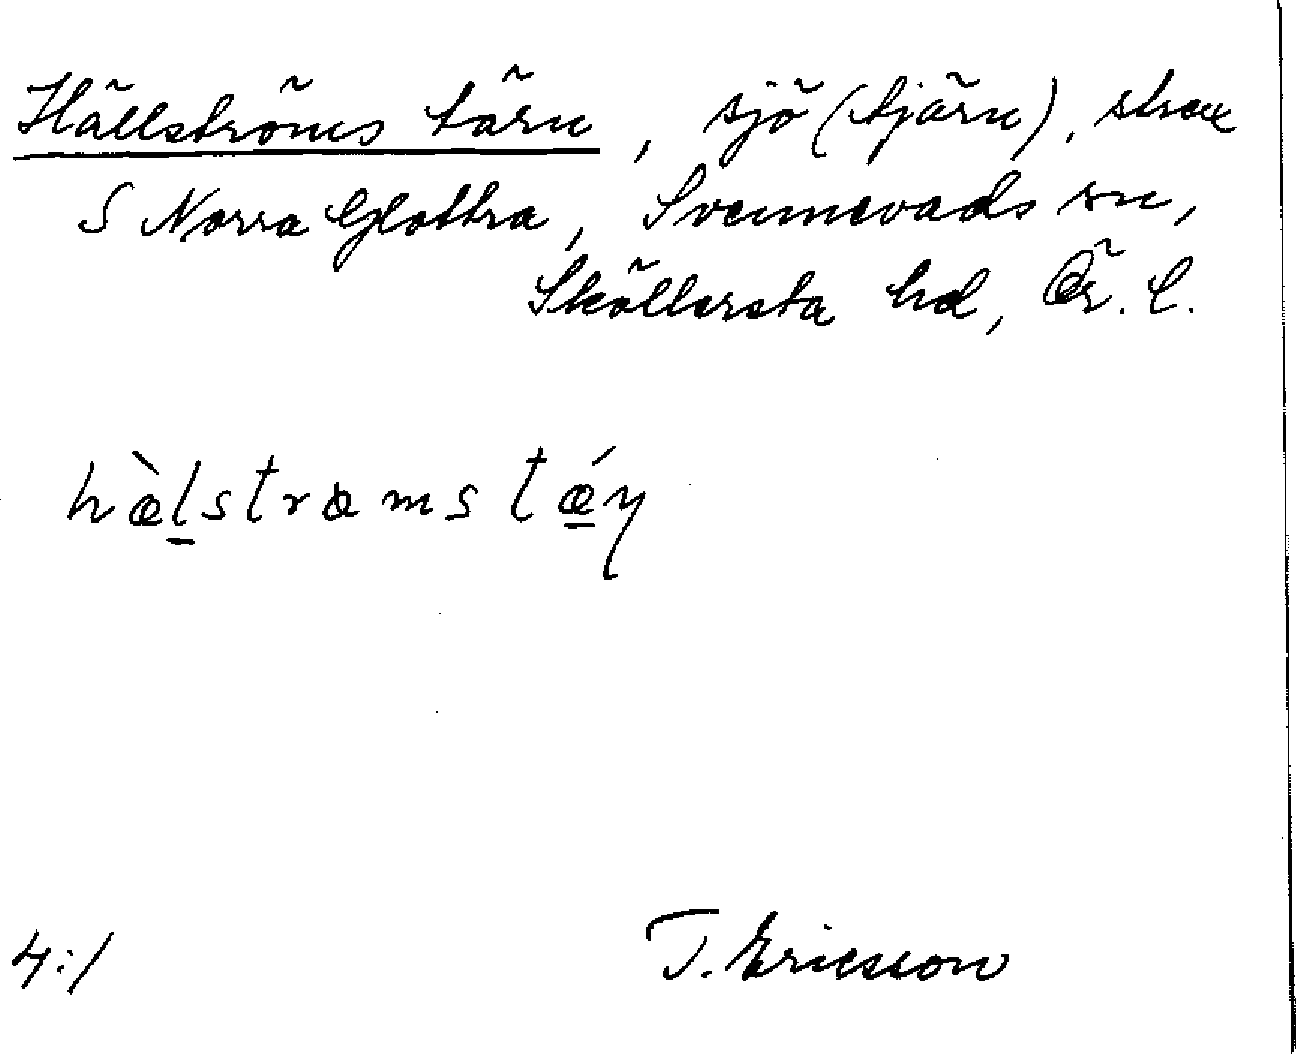 Hällströms tärn, sjö (tjärn), strax
S Norra Glottra, Svennevads sn,
Sköllersta hd, Ör. l.
hæ̀l̲strömstǽ̲n
4:1
T. Ericsson